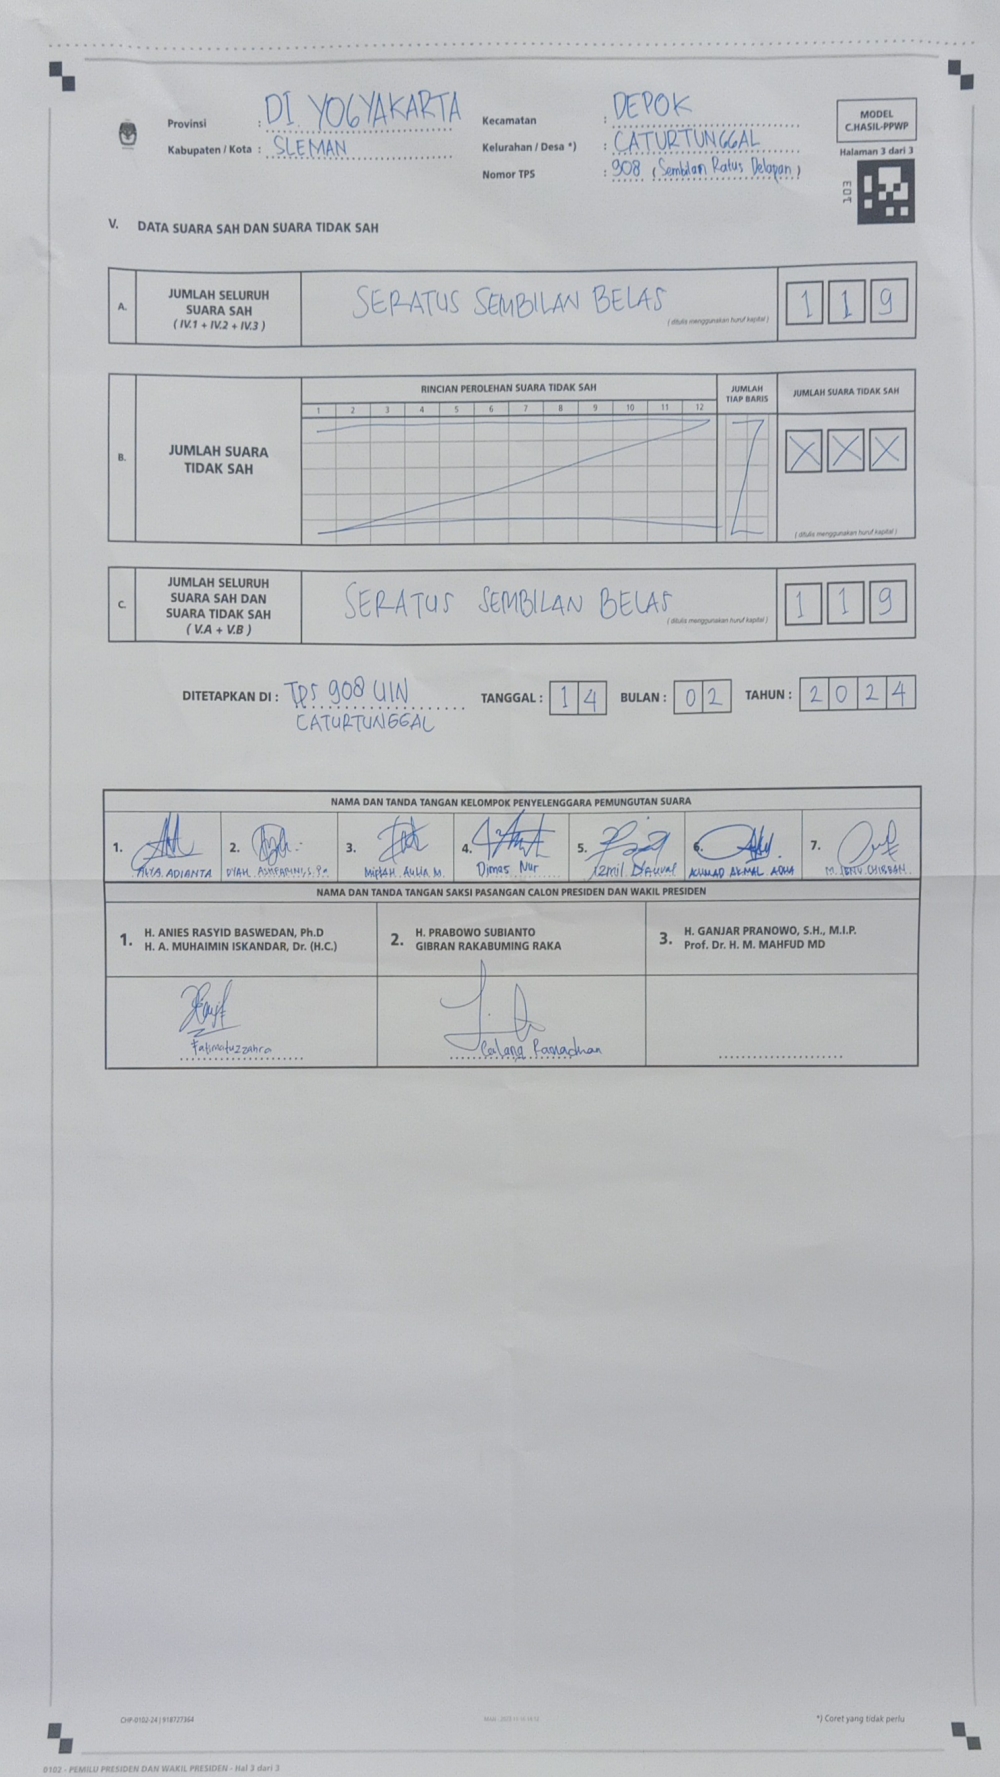 Provinsi : DI YOGYAKARTA
Kabupaten / Kota : SLEMAN
Kecamatan : DEPOK
Kelurahan / Desa *) : CATURTUNGGAL
Nomor TPS : 908 (Sembilan Ratus Delapan)
MODEL
C.HASIL-PPWP
Halaman 3 dari 3
103
V. DATA SUARA SAH DAN SUARA TIDAK SAH
A. JUMLAH SELURUH
SUARA SAH
( IV.1 + IV.2 + IV.3 )
SERATUS SEMBILAN BELAS
( ditulis menggunakan huruf kapital )
1 1 9
B. JUMLAH SUARA
TIDAK SAH
RINCIAN PEROLEHAN SUARA TIDAK SAH
1 2 3 4 5 6 7 8 9 10 11 12
JUMLAH
TIAP BARIS
JUMLAH SUARA TIDAK SAH
X X X
( ditulis menggunakan huruf kapital )
C. JUMLAH SELURUH
SUARA SAH DAN
SUARA TIDAK SAH
( V.A + V.B )
SERATUS SEMBILAN BELAS
( ditulis menggunakan huruf kapital )
1 1 9
DITETAPKAN DI : TPS 908 UIN
CATURTUNGGAL
TANGGAL : 1 4 BULAN : 0 2 TAHUN : 2 0 2 4
NAMA DAN TANDA TANGAN KELOMPOK PENYELENGGARA PEMUNGUTAN SUARA
1. 2. 3. 4. 5. 6. 7.
ADIANTA
DYAH
Miftah Aulia M.
Dimas Nur
AKMAL
NAMA DAN TANDA TANGAN SAKSI PASANGAN CALON PRESIDEN DAN WAKIL PRESIDEN
1. H. ANIES RASYID BASWEDAN, Ph.D
H. A. MUHAIMIN ISKANDAR, Dr. (H.C.)
2. H. PRABOWO SUBIANTO
GIBRAN RAKABUMING RAKA
3. H. GANJAR PRANOWO, S.H., M.I.P.
Prof. Dr. H. M. MAHFUD MD
Fatimatuzzahra
Ramadhan
CHP-0102-24 | 918727364
*) Coret yang tidak perlu
0102 - PEMILU PRESIDEN DAN WAKIL PRESIDEN - Hal 3 dari 3